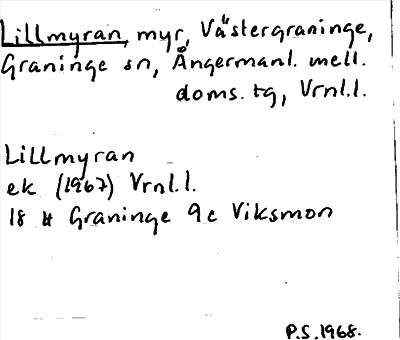 Lillmyran, myr, Västergraninge,
Graninge sn, Ångermanl. mell.
doms. tg, Vrnl.l.
Lillmyran
ek (1967) Vrnl.l.
18 H Graninge 9c Viksmon
P.S. 1968.